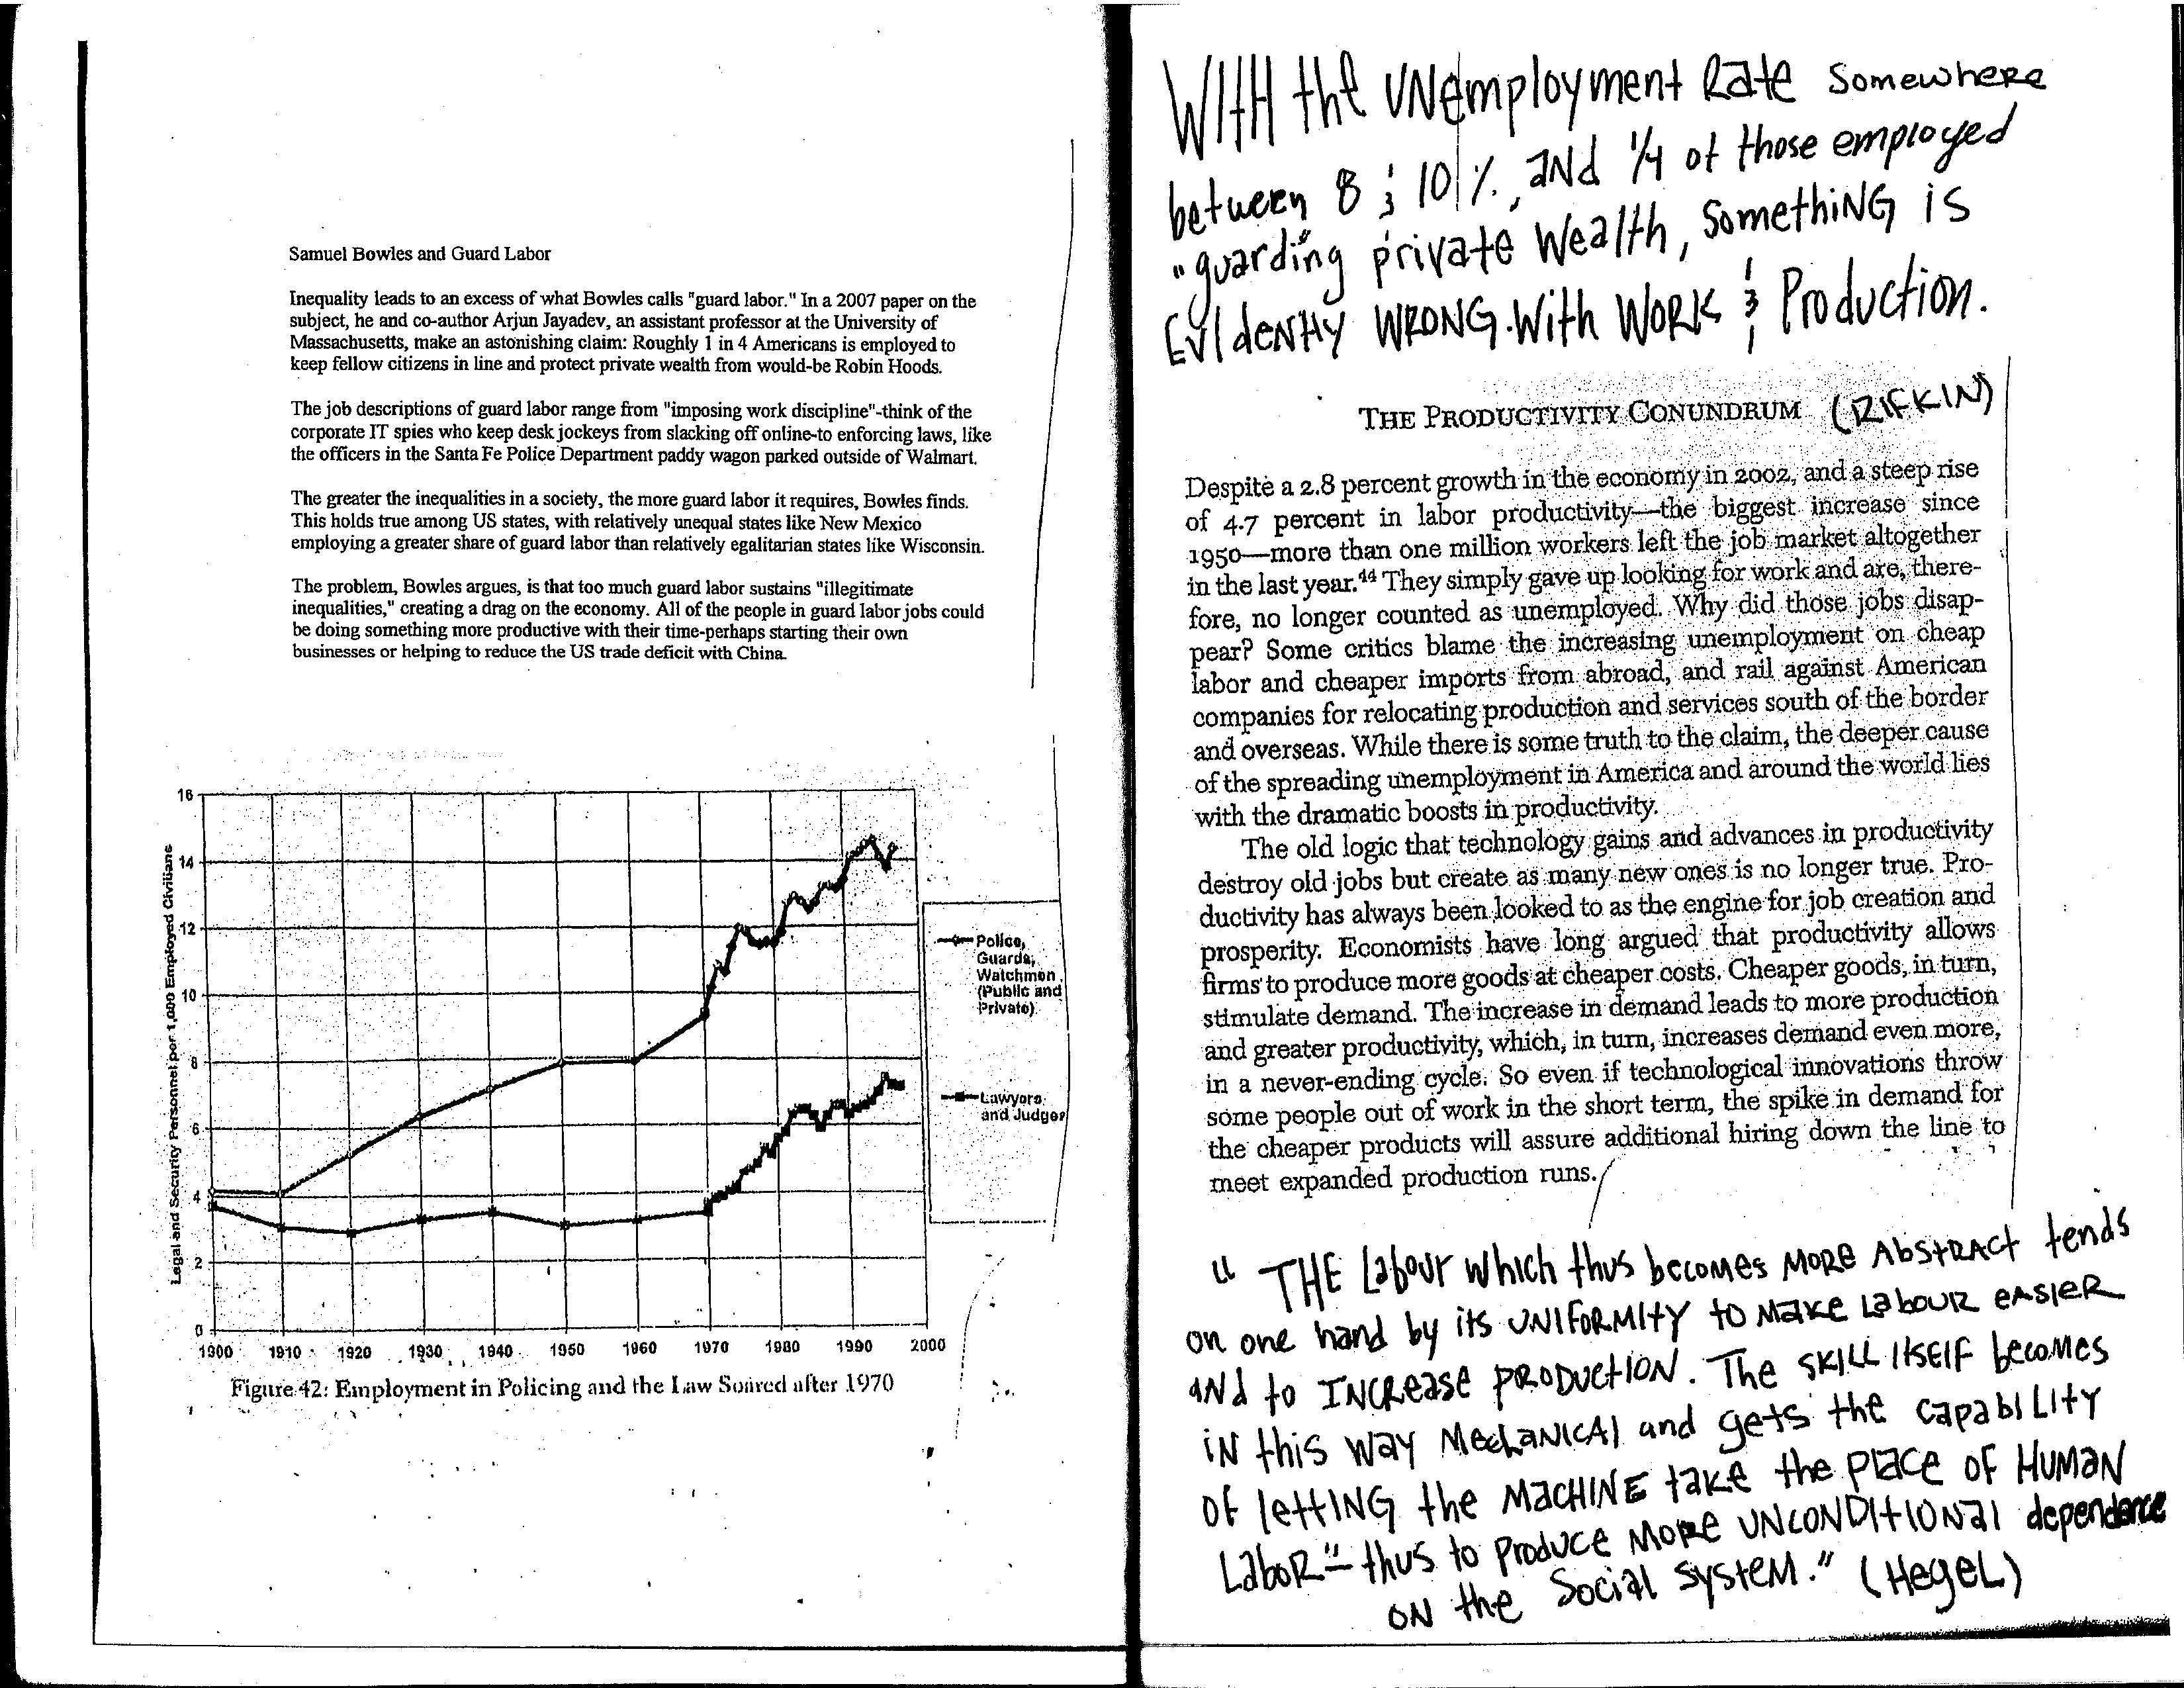 Samuel Bowles and Guard Labor
Inequality leads to an excess of what Bowles calls "guard labor." In a 2007 paper on the
subject, he and co-author Arjun Jayadev, an assistant professor at the University of
Massachusetts, make an astonishing claim: Roughly 1 in 4 Americans is employed to
keep fellow citizens in line and protect private wealth from would-be Robin Hoods.
The job descriptions of guard labor range from "imposing work discipline"-think of the
corporate IT spies who keep desk jockeys from slacking off online-to enforcing laws, like
the officers in the Santa Fe Police Department paddy wagon parked outside of Walmart.
The greater the inequalities in a society, the more guard labor it requires, Bowles finds.
This holds true among US states, with relatively unequal states like New Mexico
employing a greater share of guard labor than relatively egalitarian states like Wisconsin.
The problem, Bowles argues, is that too much guard labor sustains "illegitimate
inequalities," creating a drag on the economy. All of the people in guard labor jobs could
be doing something more productive with their time-perhaps starting their own
businesses or helping to reduce the US trade deficit with China.
Legal and Security Personnel per 1,000 Employed Civilians
16
14
12
10
8
6
4
2
0
1900 1910 1920 1930 1940 1950 1960 1970 1980 1990 2000
Police,
Guards,
Watchmen
(Public and
Private)
Lawyers
and Judges
Figure 42: Employment in Policing and the Law Soared after 1970
WITH the UNemployment Rate Somewhere
between 8 & 10%, and 1/4 of those employed
"guarding" private wealth, something is
Evidently WRONG With WORK & Production.
THE PRODUCTIVITY CONUNDRUM (RIFKIN)
Despite a 2.8 percent growth in the economy in 2002, and a steep rise
of 4.7 percent in labor productivity—the biggest increase since
1950—more than one million workers left the job market altogether
in the last year.44 They simply gave up looking for work and are, there-
fore, no longer counted as unemployed. Why did those jobs disap-
pear? Some critics blame the increasing unemployment on cheap
labor and cheaper imports from abroad, and rail against American
companies for relocating production and services south of the border
and overseas. While there is some truth to the claim, the deeper cause
of the spreading unemployment in America and around the world lies
with the dramatic boosts in productivity.
The old logic that technology gains and advances in productivity
destroy old jobs but create as many new ones is no longer true. Pro-
ductivity has always been looked to as the engine for job creation and
prosperity. Economists have long argued that productivity allows
firms to produce more goods at cheaper costs. Cheaper goods, in turn,
stimulate demand. The increase in demand leads to more production
and greater productivity, which, in turn, increases demand even more,
in a never-ending cycle. So even if technological innovations throw
some people out of work in the short term, the spike in demand for
the cheaper products will assure additional hiring down the line to
meet expanded production runs.
"THE Labour which thus becomes MORE AbstRAct tends
on one hand by its UNIFORMITY to MAKE LABOUR EASIER
and to INCREASE PRODUCTION. The SKILL ITSELF becomes
in this way MechaNICAl and gets the capabILITY
of lettING the MACHINE take the PLACE OF HUMAN
LaboR"—thus to produce MORE UNCONDITIONAL dependence
ON the Social System." (Hegel)